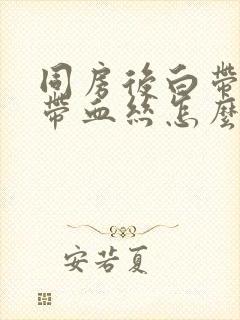 同房後白帶
帶血絲怎麼
安若夏